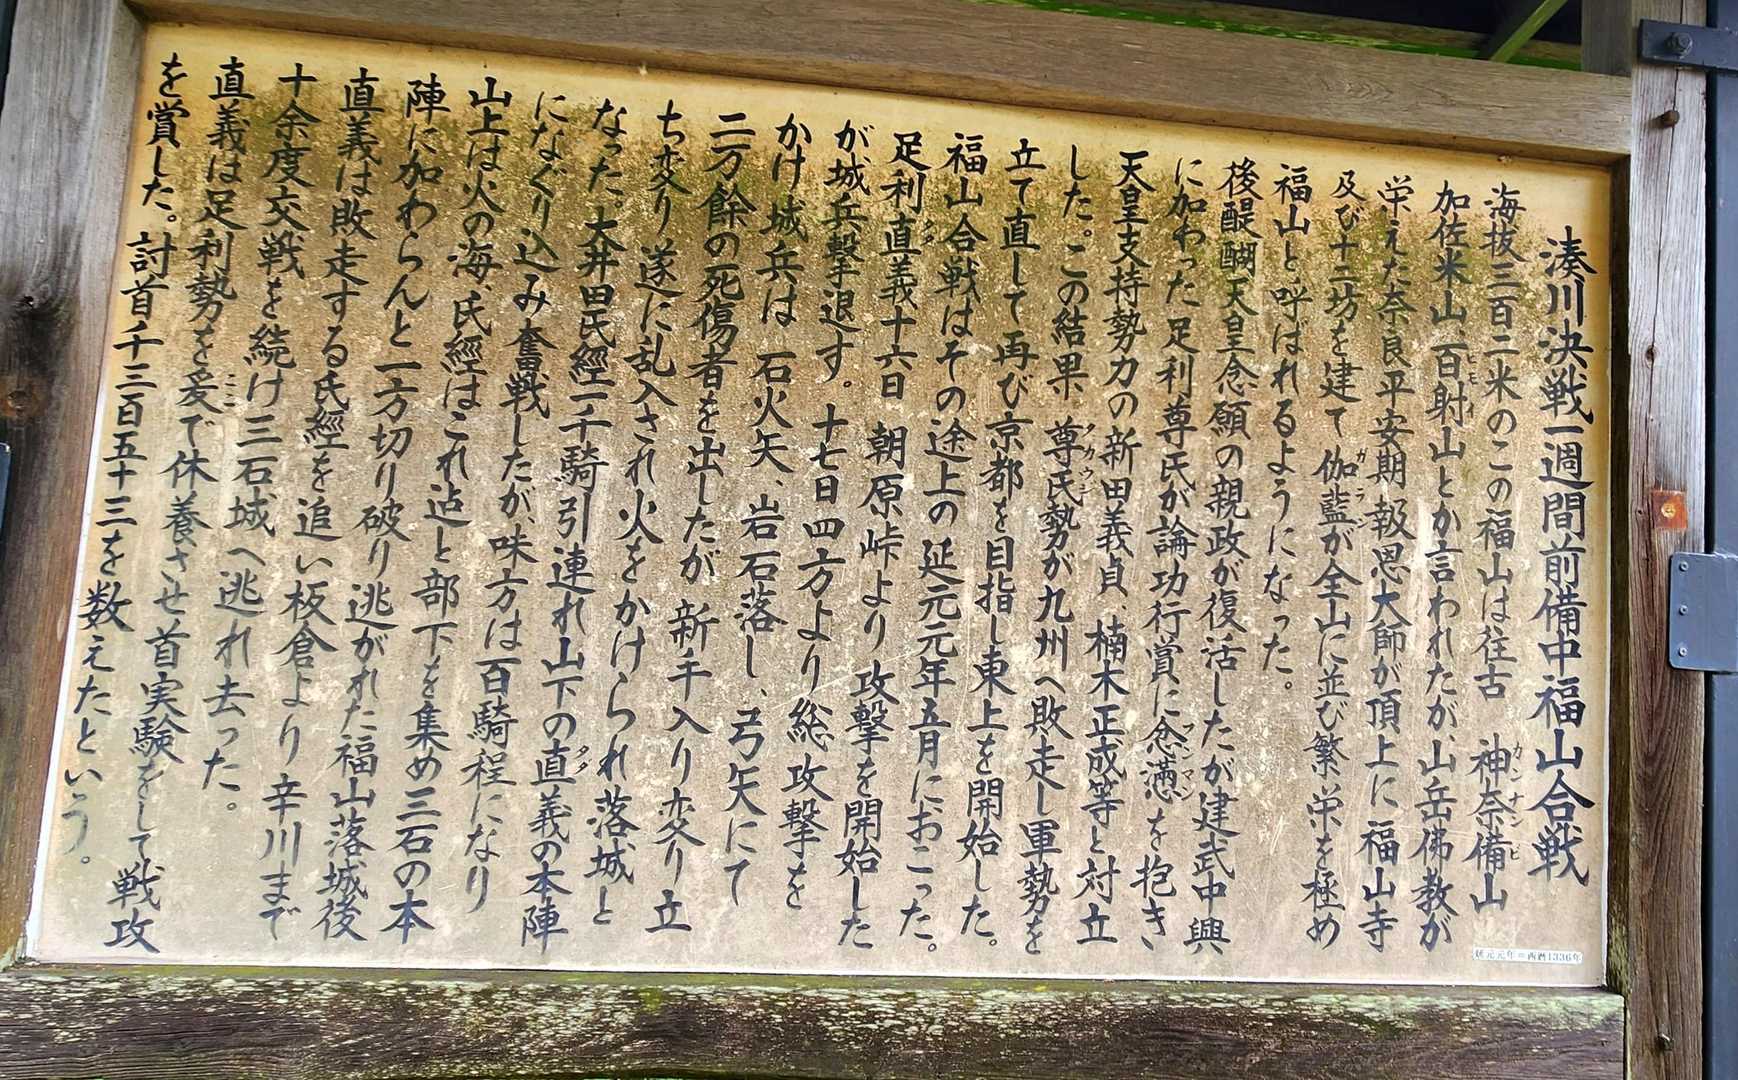 湊川決戦一週間前備中福山合戦
海抜三百二米のこの福山は往古 神奈備山
カンナンビ
加佐米山、百射山とか言われたが、山岳佛教が
ヒモイ
栄えた奈良平安期報恩大師が頂上に福山寺
及び十二坊を建て伽藍が全山に並び繁栄を極め
ガラン
福山と呼ばれるようになった。
後醍醐天皇念願の親政が復活したが建武中興
に加わった足利尊氏が論功行賞に忿懣を抱き、
フンマン
天皇支持勢力の新田義貞、楠木正成等と対立
した。この結果、尊氏勢が九州へ敗走し軍勢を
タカウジ
立て直して再び京都を目指し東上を開始した。
福山合戦はその途上の延元元年五月におこった。
足利直義十六日 朝原峠より攻撃を開始した
タダ
が、城兵撃退す。十七日四方より総攻撃を
かけ城兵は 石火矢、岩石落し、弓矢にて
二万餘の死傷者を出したが 新手入り変り立
ち変り 遂に乱入され火をかけられ落城と
なった。大井田氏經一千騎引連れ山下の直義の本陣
タダ
になぐり込み奮戦したが、味方は百騎程になり
山上は火の海、氏經はこれ迠と部下を集め三石の本
陣に加わらんと一方切り破り逃がれた福山落城後
直義は敗走する氏經を追い板倉より辛川まで
十余度交戦を続け三石城へ逃れ去った。
直義は足利勢を爰で休養させ首実験をして戦攻
ここ
を賞した。討首千三百五十三を数えたという。
延元元年=西暦1336年